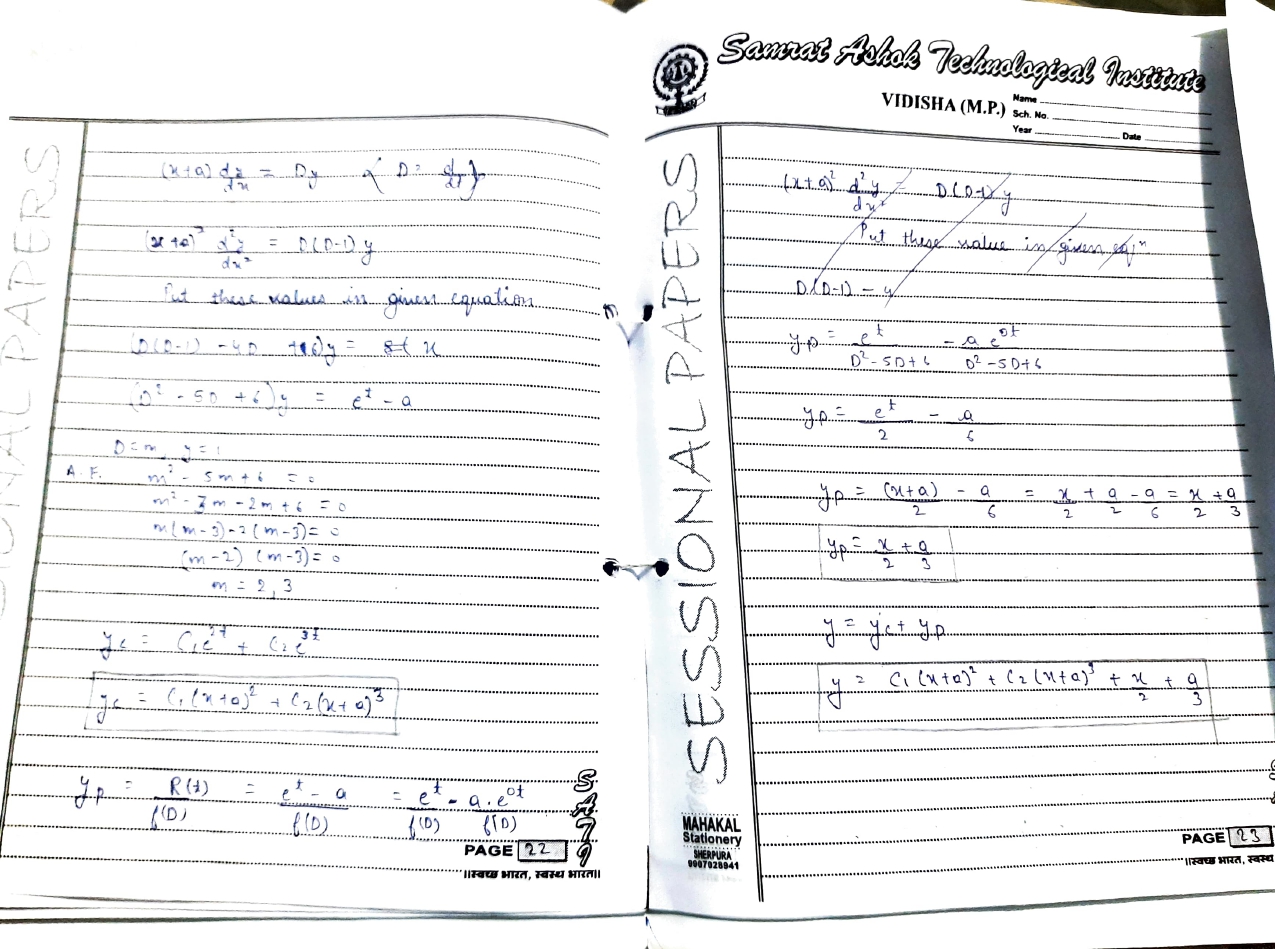 SESSIONAL PAPERS
(x+a) dy/dx = Dy { D = d/dt }
(x+a)² d²y/dx² = D(D-1)y
Put these values in given equation
(D(D-1) - 4D + 6)y = x
(D² - 5D + 6)y = e^t - a
D = m, y = 1
A.F. m² - 5m + 6 = 0
m² - 3m - 2m + 6 = 0
m(m-3) - 2(m-3) = 0
(m-2) (m-3) = 0
m = 2, 3
yc = C₁e^2t + C₂e^3t
yc = C₁(x+a)² + C₂(x+a)³
yp = R(t)/f(D) = e^t - a/f(D) = e^t/f(D) - a.e^0t/f(D)
SATI
PAGE 22
||स्वच्छ भारत, स्वस्थ भारत||
Samrat Ashok Technological Institute
VIDISHA (M.P.)
Name
Sch. No.
Year Date
SESSIONAL PAPERS
(x+a)² d²y/dx² = D(D-1)y
Put these value in given eqⁿ
D(D-1) - 4
yp = e^t/D²-5D+6 - a e^0t/D²-5D+6
yp = e^t/2 - a/6
yp = (x+a)/2 - a/6 = x/2 + a/2 - a/6 = x/2 + a/3
yp = x/2 + a/3
y = yc + yp
y = C₁(x+a)² + C₂(x+a)³ + x/2 + a/3
MAHAKAL
Stationery
SHERPURA
9907028941
PAGE 23
||स्वच्छ भारत, स्वस्थ